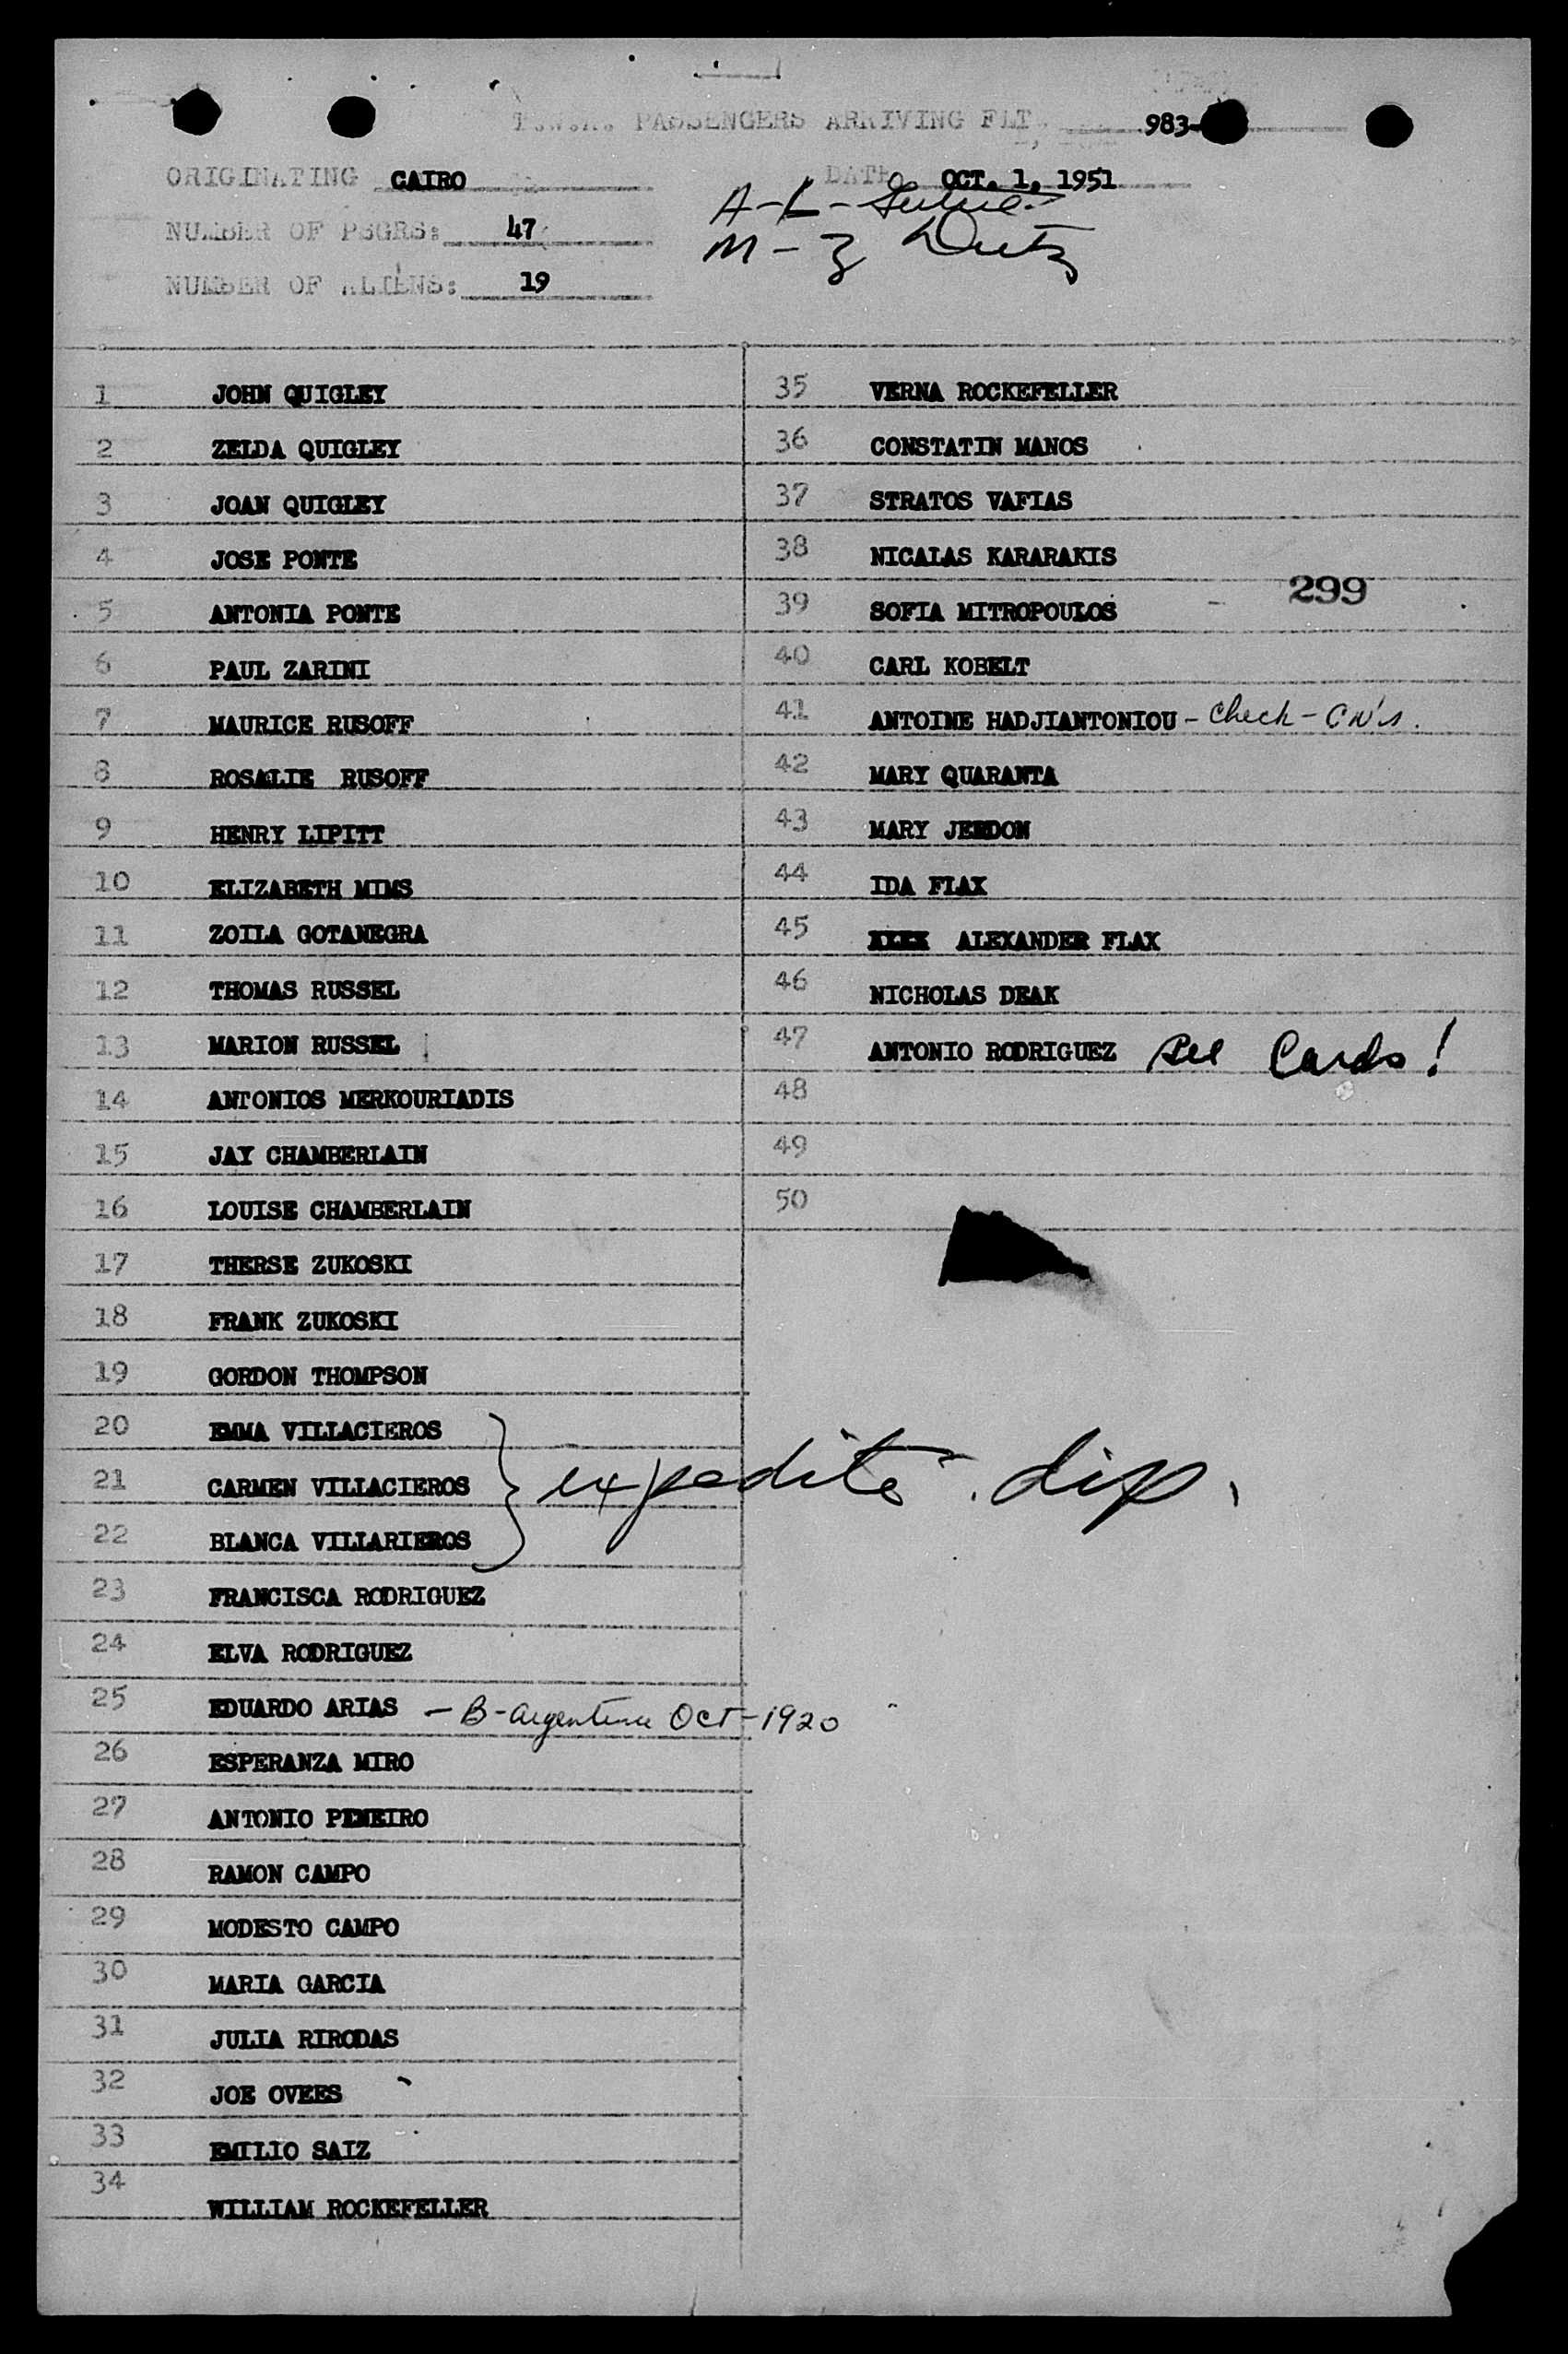 T.W.A. PASSENGERS ARRIVING FLT. 983-
ORIGINATING CAIRO DATE OCT. 1, 1951
NUMBER OF PSGRS: 47 A-L-
NUMBER OF ALIENS: 19 M-Z
1 JOHN QUIGLEY
2 ZELDA QUIGLEY
3 JOAN QUIGLEY
4 JOSE PONTE
5 ANTONIA PONTE
6 PAUL ZARINI
7 MAURICE RUSOFF
8 ROSALIE RUSOFF
9 HENRY LIPITT
10 ELIZABETH MIMS
11 ZOILA GOTANEGRA
12 THOMAS RUSSEL
13 MARION RUSSEL
14 ANTONIOS MERKOURIADIS
15 JAY CHAMBERLAIN
16 LOUISE CHAMBERLAIN
17 THERSE ZUKOSKI
18 FRANK ZUKOSKI
19 GORDON THOMPSON
20 EMMA VILLACIEROS
21 CARMEN VILLACIEROS expedite. dip.
22 BLANCA VILLARIEROS
23 FRANCISCA RODRIGUEZ
24 ELVA RODRIGUEZ
25 EDUARDO ARIAS - B-Argentina Oct-1920
26 ESPERANZA MIRO
27 ANTONIO PINEIRO
28 RAMON CAMPO
29 MODESTO CAMPO
30 MARIA GARCIA
31 JULIA RIRODAS
32 JOE OVEES
33 EMILIO SAIZ
34 WILLIAM ROCKEFELLER
35 VERNA ROCKEFELLER
36 CONSTATIN MANOS
37 STRATOS VAFIAS
38 NICALAS KARARAKIS
299
39 SOFIA MITROPOULOS
40 CARL KOBELT
41 ANTOINE HADJIANTONIOU - Check - CW's.
42 MARY QUARANTA
43 MARY JERDON
44 IDA FLAX
45 ALEXANDER FLAX
46 NICHOLAS DEAK
47 ANTONIO RODRIGUEZ See Cards!
48
49
50